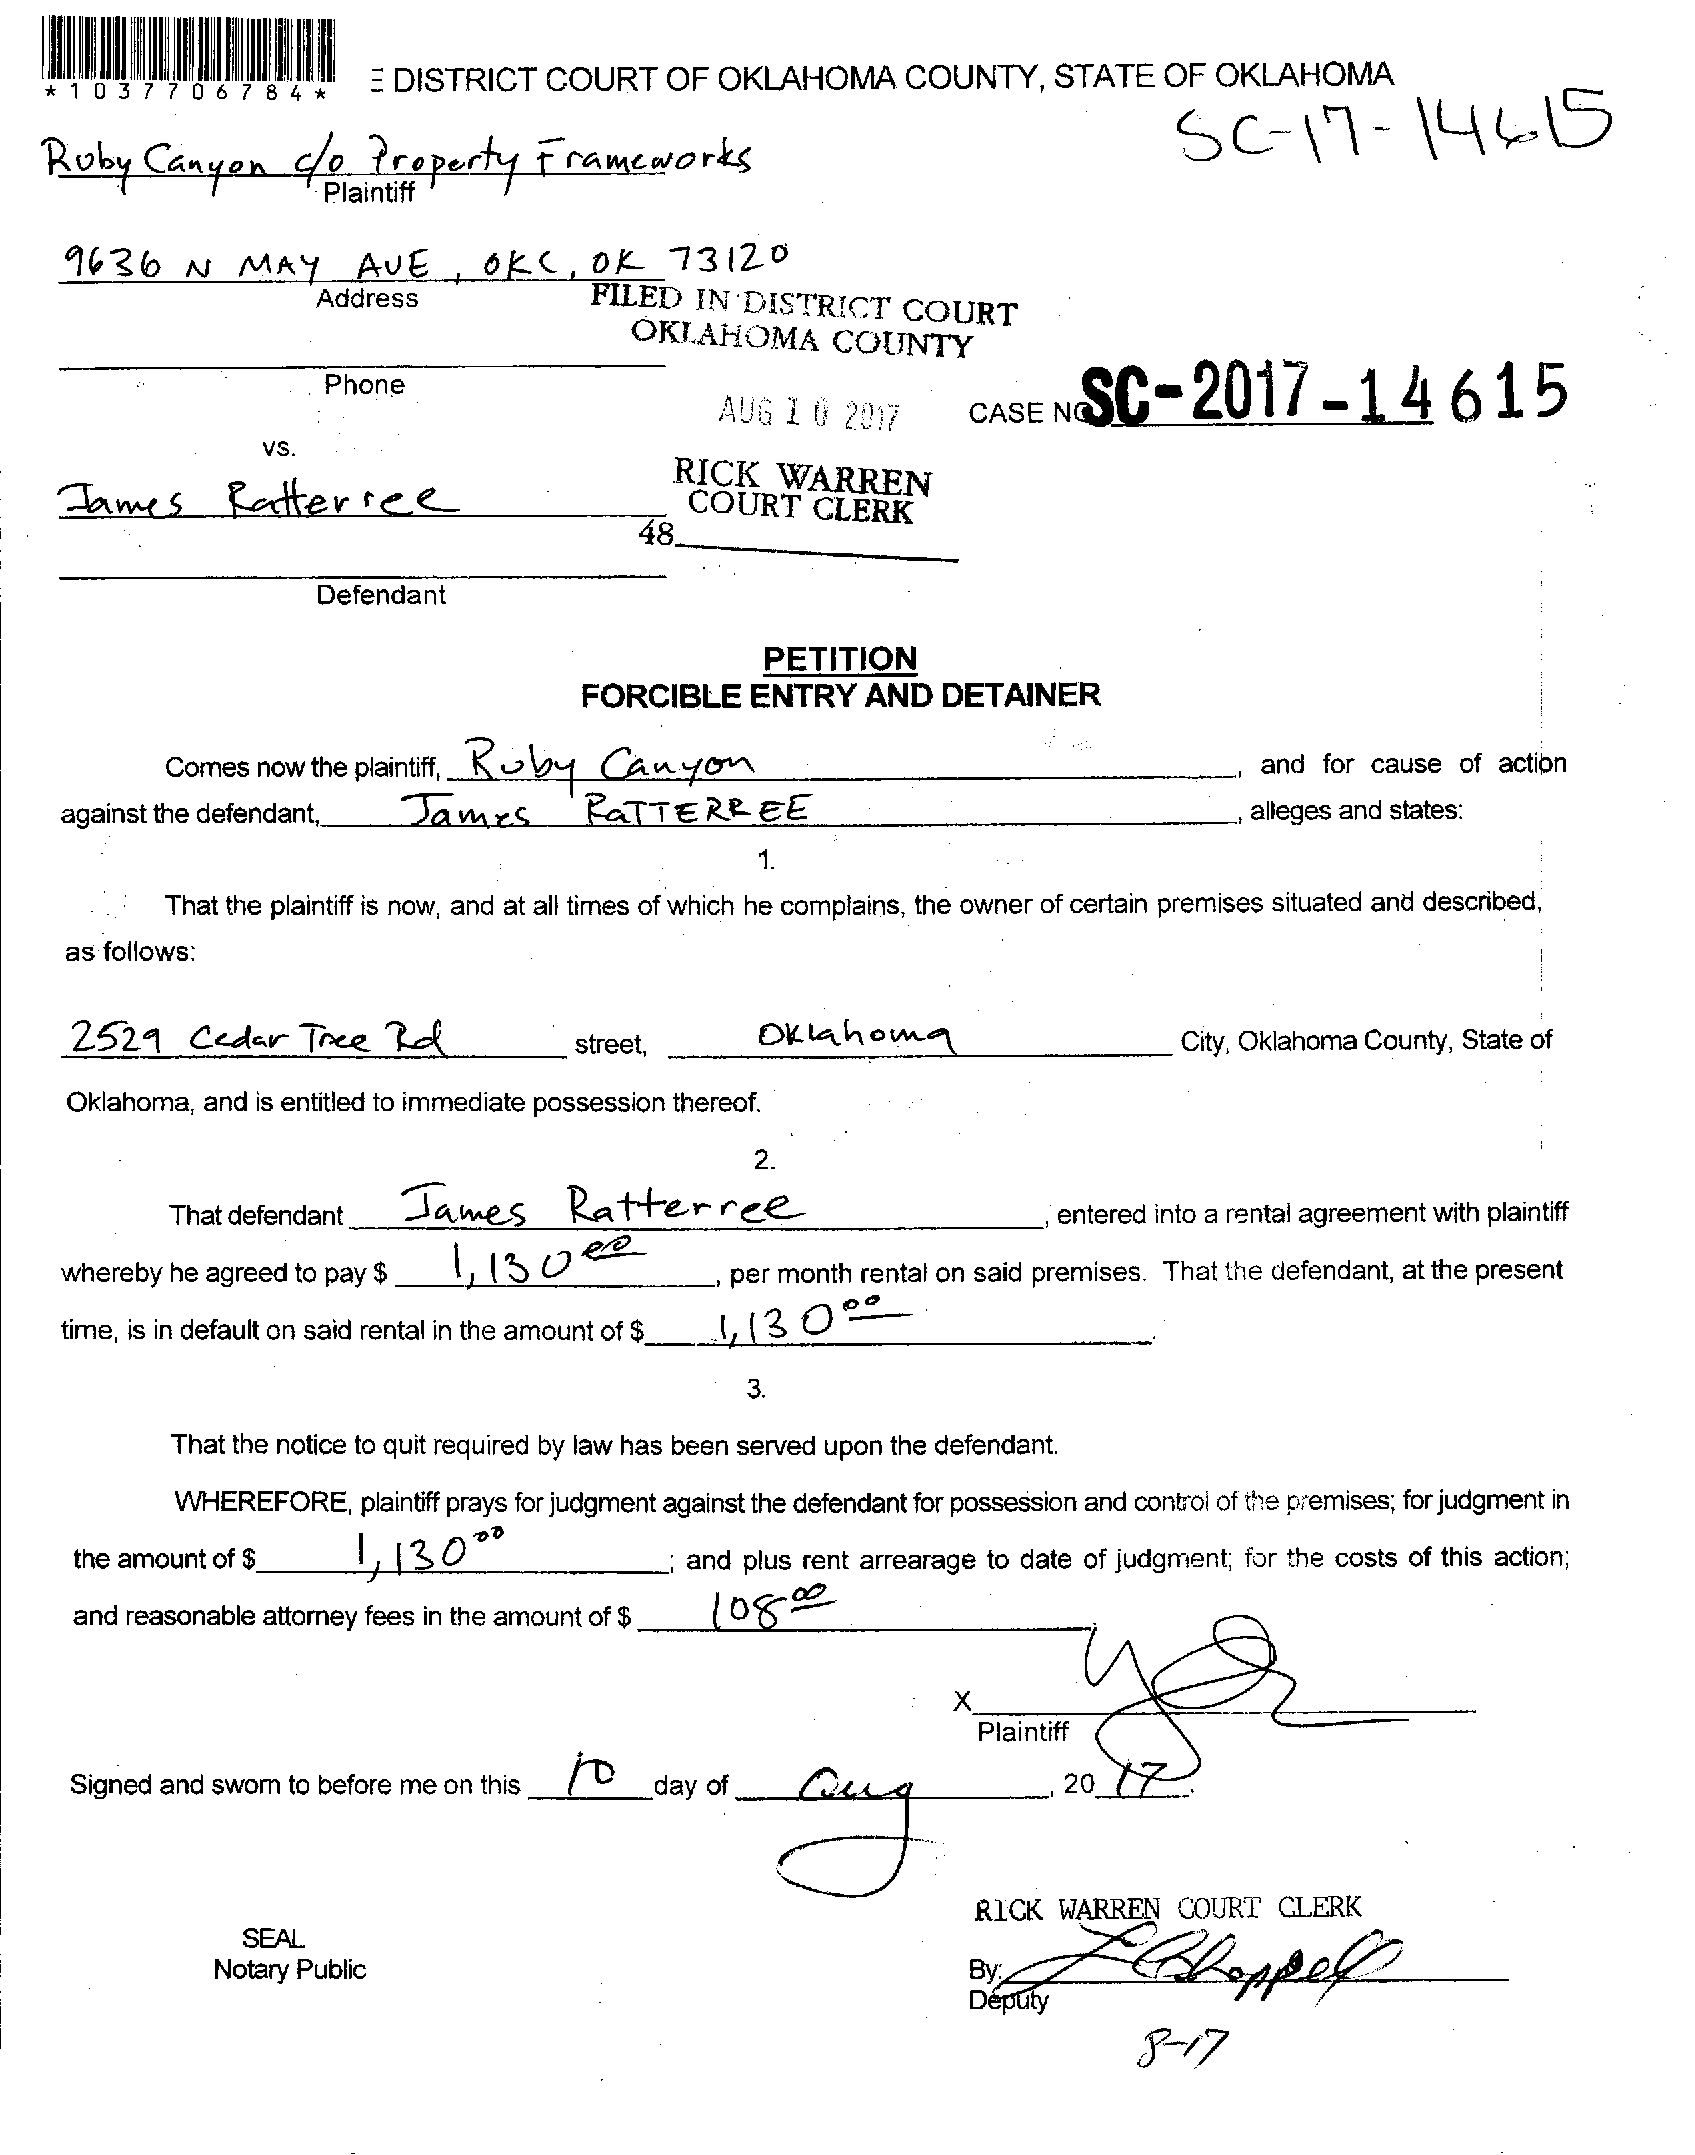 *1037706784*
E DISTRICT COURT OF OKLAHOMA COUNTY, STATE OF OKLAHOMA
SC-17-14615
Ruby Canyon c/o Property Frameworks
Plaintiff
9636 N MAY AVE, OKC, OK 73120
Address
FILED IN DISTRICT COURT
OKLAHOMA COUNTY
Phone
AUG 10 2017
CASE NO SC-2017-14615
vs.
RICK WARREN
James Ratterree
COURT CLERK
48
Defendant
PETITION
FORCIBLE ENTRY AND DETAINER
Comes now the plaintiff, Ruby Canyon, and for cause of action
against the defendant, James RATTERREE, alleges and states:
1.
That the plaintiff is now, and at all times of which he complains, the owner of certain premises situated and described,
as follows:
2529 Cedar Tree Rd street, Oklahoma City, Oklahoma County, State of
Oklahoma, and is entitled to immediate possession thereof.
2.
That defendant James Ratterree, entered into a rental agreement with plaintiff
whereby he agreed to pay $ 1,130 00, per month rental on said premises. That the defendant, at the present
time, is in default on said rental in the amount of $ 1,130 00.
3.
That the notice to quit required by law has been served upon the defendant.
WHEREFORE, plaintiff prays for judgment against the defendant for possession and control of the premises; for judgment in
the amount of $ 1,130 00; and plus rent arrearage to date of judgment; for the costs of this action;
and reasonable attorney fees in the amount of $ 108 00
X
Plaintiff
Signed and sworn to before me on this 10 day of Aug, 20 17.
RICK WARREN COURT CLERK
SEAL
Notary Public
By:
Deputy
8-17